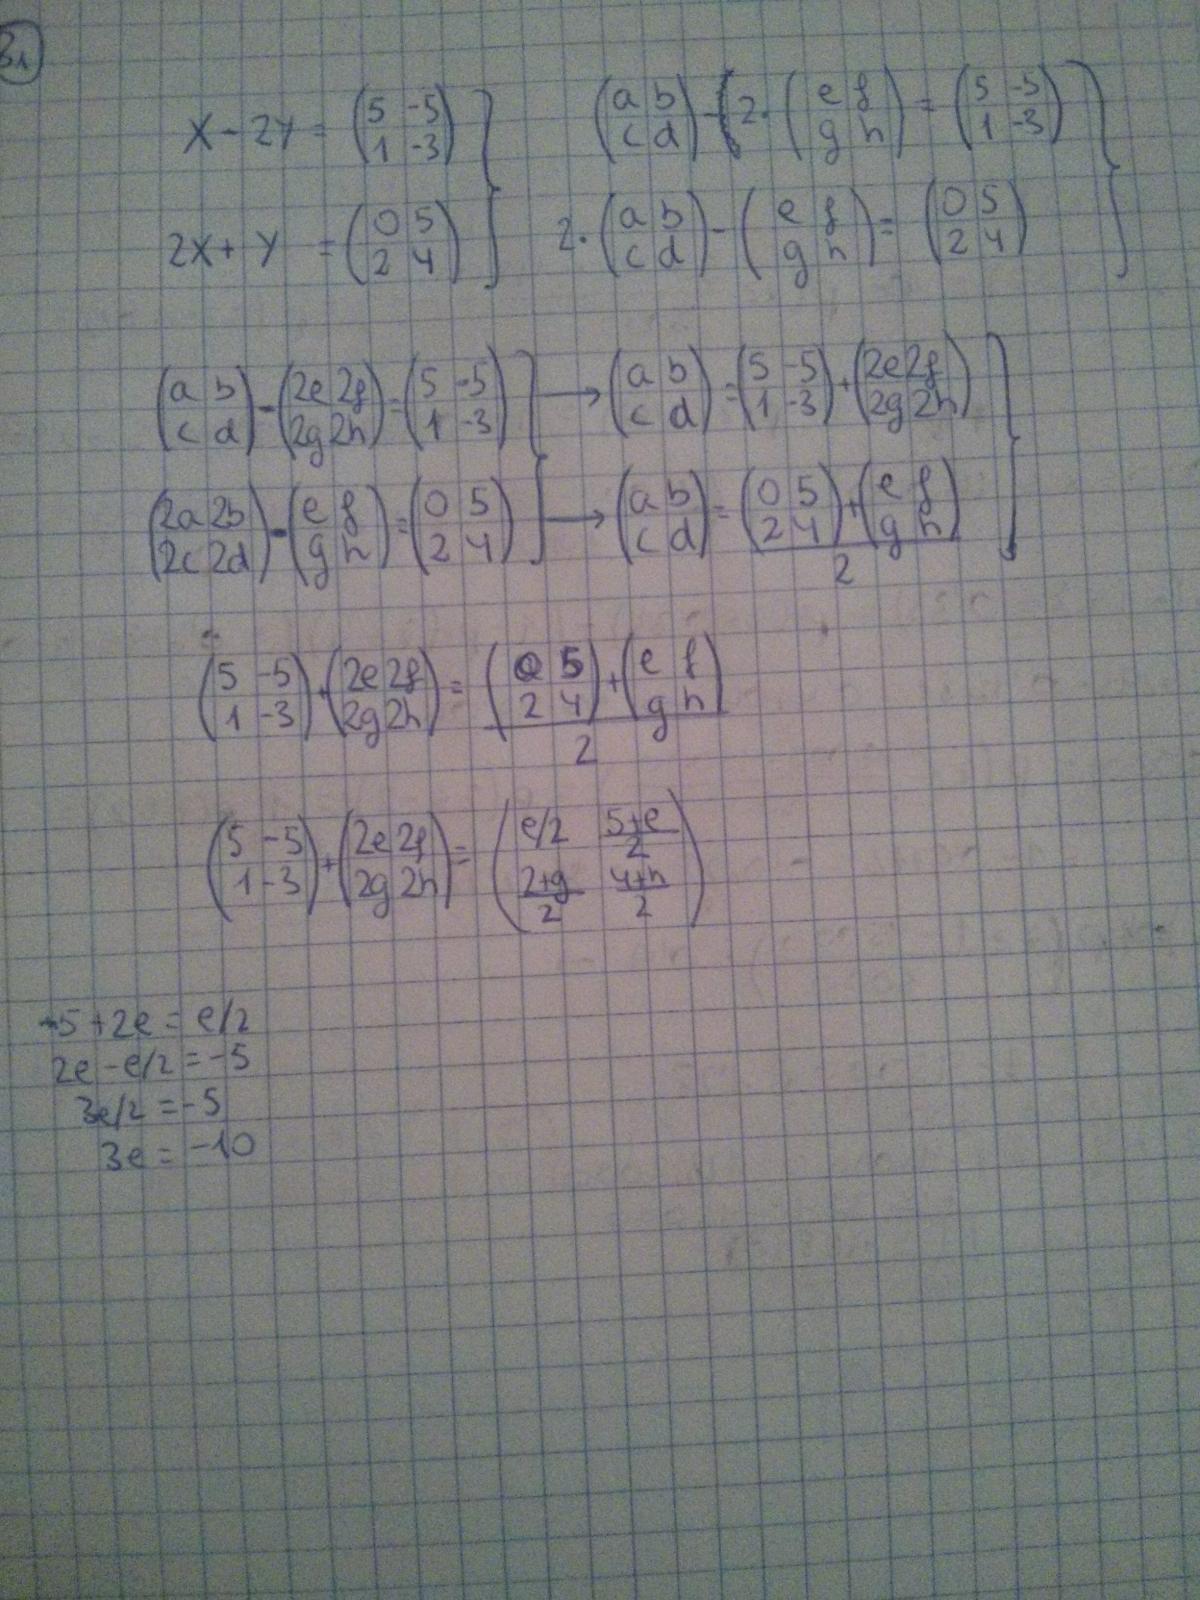 31
X - 2Y = (5 -5 / 1 -3) } (a b / c d) - 2·(e f / g h) = (5 -5 / 1 -3) }
2X + Y = (0 5 / 2 4) } 2·(a b / c d) - (e f / g h) = (0 5 / 2 4) }
(a b / c d) - (2e 2f / 2g 2h) = (5 -5 / 1 -3) } → (a b / c d) = (5 -5 / 1 -3) + (2e 2f / 2g 2h) }
(2a 2b / 2c 2d) - (e f / g h) = (0 5 / 2 4) } → (a b / c d) = ((0 5 / 2 4) + (e f / g h)) / 2 }
(5 -5 / 1 -3) + (2e 2f / 2g 2h) = ((0 5 / 2 4) + (e f / g h)) / 2
(5 -5 / 1 -3) + (2e 2f / 2g 2h) = (e/2 (5+e)/2 / (2+g)/2 (4+h)/2)
5 + 2e = e/2
2e - e/2 = -5
3e/2 = -5
3e = -10